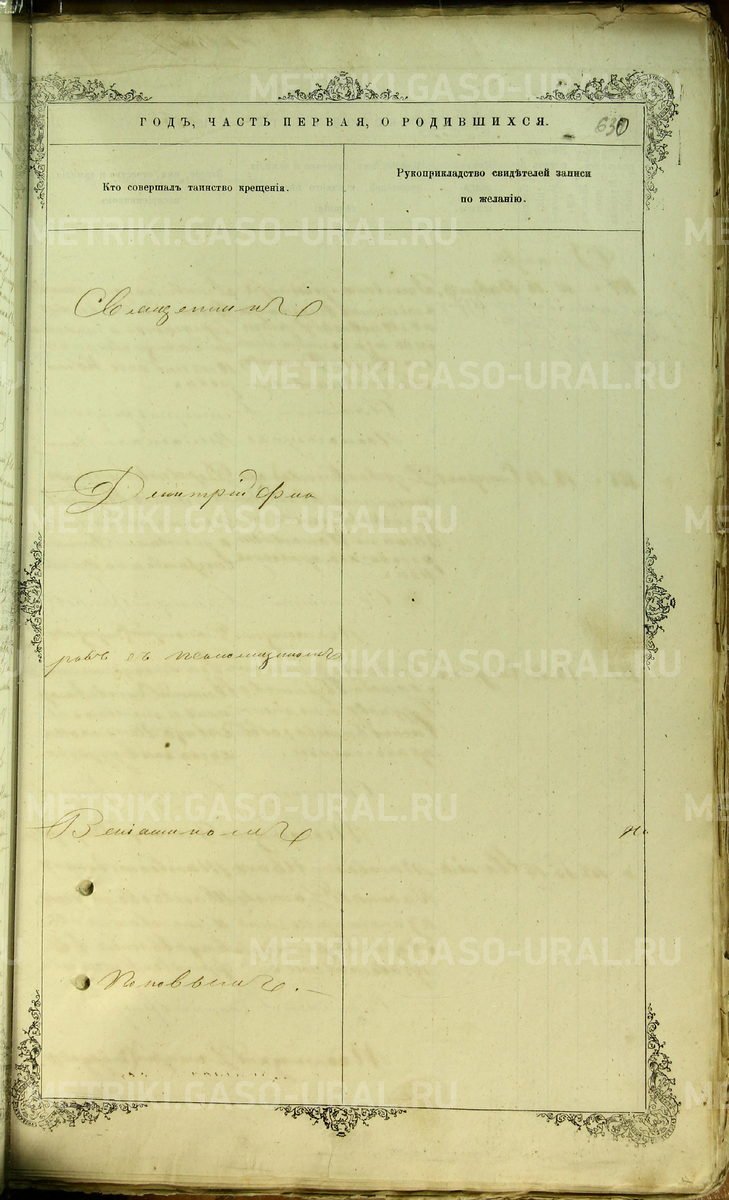 ГОДЪ, ЧАСТЬ ПЕРВАЯ, О РОДИВШИХСЯ.
630
Кто совершалъ таинство крещенія.
Рукоприкладство свидѣтелей записи
по желанію.
Священникъ
Димитрій
ровъ съ псаломщикомъ
Веніаминомъ
Поповымъ. —
METRIKI.GASO-URAL.RU